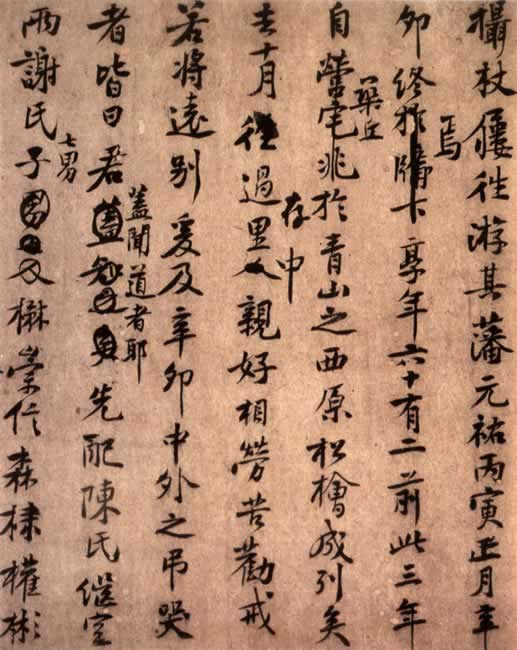 攝杖屨往游其藩元祐丙寅正月辛
焉
卯終於牖下享年六十有二前此三年
築丘
自營宅兆於青山之西原松檜成列矣
存中
十月往過里人親好相勞苦勸戒
若將遠别爰及辛卯中外之弔哭
蓋聞道者耶
者皆曰君蓋先配陳氏繼室
七男
兩謝氏子楙崇信森棣權彬